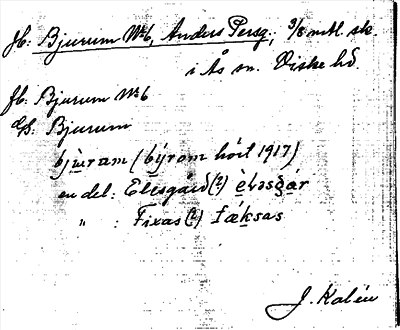 Jb. Bjurum Nr 6, Anders Persg., 3/8 mtl sk
i Ås sn. Viske hd.
Jb. Bjurum Nr 6
Gs. Bjurum
bjùram (býrom hört 1917)
en del: Elesgård (?) èləsgår
" : Fixas (?) fǽksas
J. Kalén